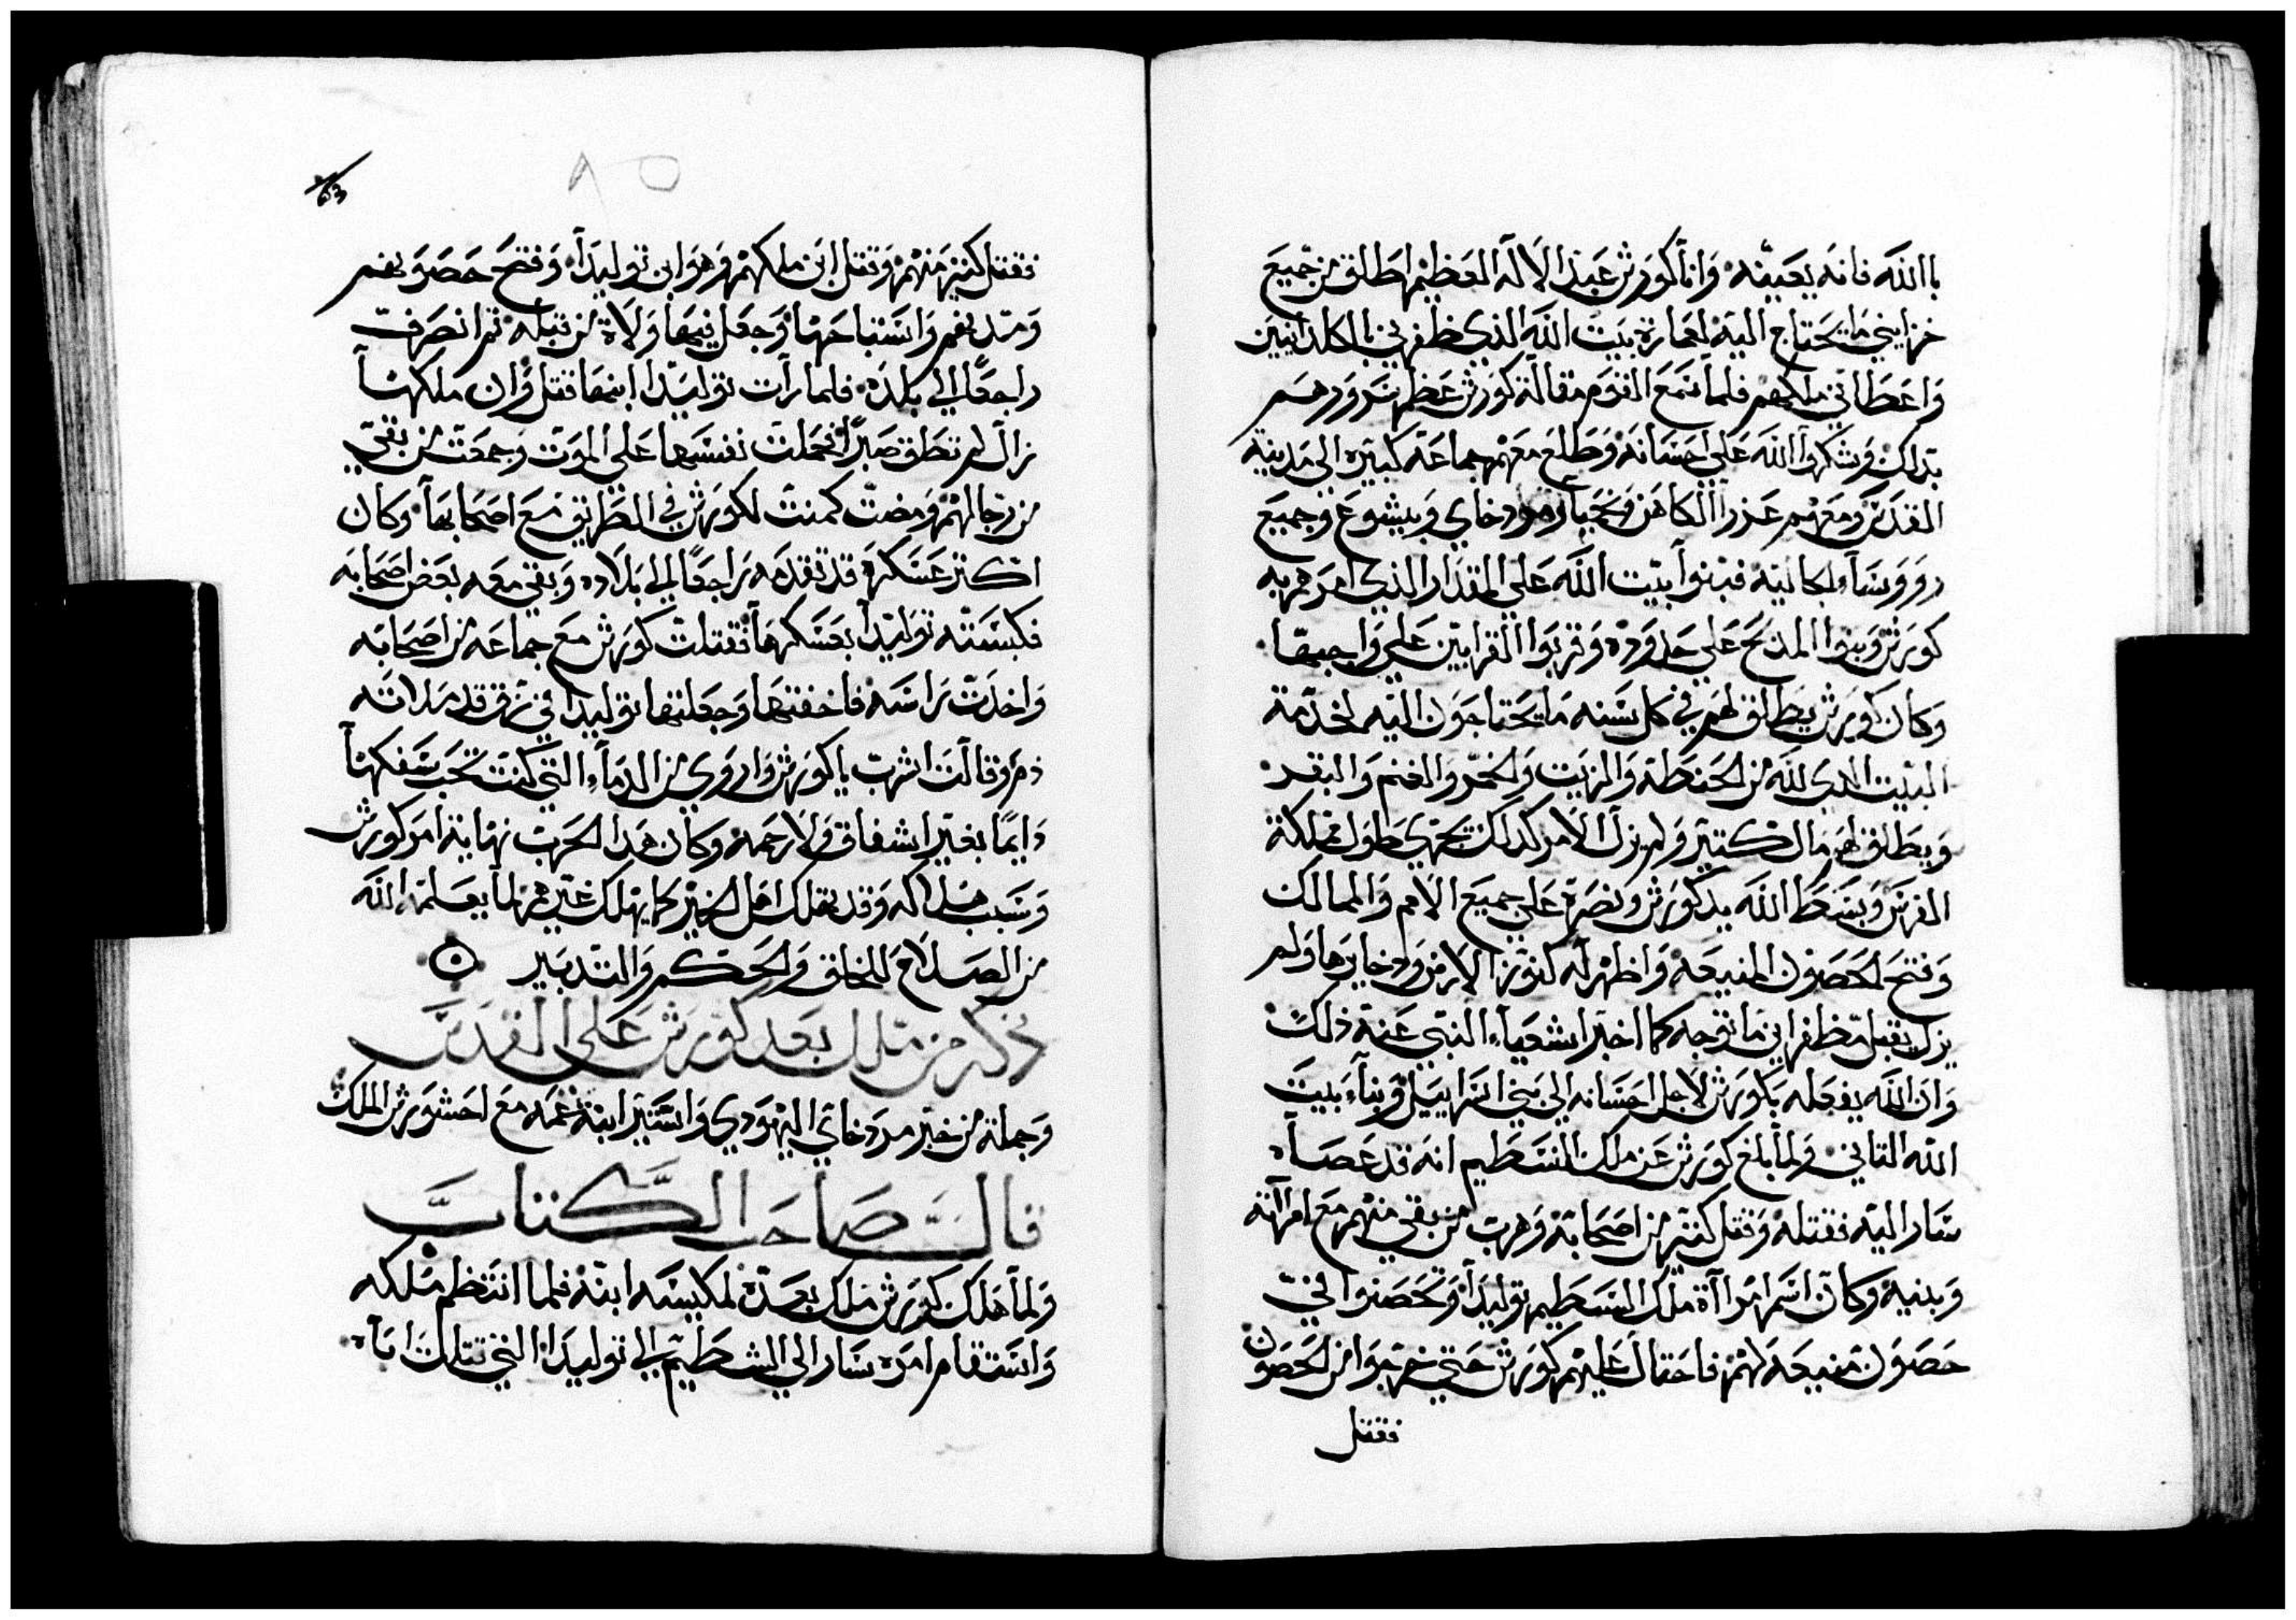 باالله فانه يعينه وانا كورش عبد الاله العظيم اطلق من جميع
خزايني ما يحتاج اليه لعمارة بيت الله الذي ظفرني بالكلدانيين
واعطاني ملكهم فلما سمع القوم مقالة كورش عظم سرورهم
بذلك وشكروا الله على احسانه وطلع معهم جماعة كبيره الى مدينة
القدس ومعهم عزرا الكاهن ونحميا ومردخاي ويشوع وجميع
رووسآ الجاليه فبنوا بيت الله على المقدار الذي امرهم به
كورش وبنوا المدبح على حدوده وقربوا القرابين على واجبها
وكان كورش يطلق لهم في كل سنه ما يحتاجون اليه لخدمة
البيت الذي لله من الحنطه والزيت والخمر والغنم والبقر
ويطلق لهم مال كتير ولم يزل الامر كدلك يجري طول مملكة
الفرس وبسط الله يد كورش ونصره على جميع الامم والممالك
وفتح الحصون المنيعه واظهر له كنوز الارض ودخايرها ولم
يزل يقبل مظفر اين ما توجه كما اخبر اشعيآ النبي عنه ذلك
وان الله يفعله بكورش لاجل احسانه الى بني اسراييل وبنآ بيت
الله التاني ولما بلغ كورش عن ملك المسطيم انه قد عصاه
سار اليه فقتله وقتل كتير من اصحابه وهرب من بقي منهم مع امراته
وبنيه وكان اسم امراة ملك المسطيم توليدا وتحصنوا في
حصون منيعه لهم فاحتال عليهم كورش حتي خرجوا من الحصون
فقتل
63
٨٥
فقتل كتير منهم وقتل ابن ملكهم وهو ابن توليدا وفتح حصونهم
ومدنهم واستباحها وجعل فيها ولاة من قبله تم انصرف
راجعا الى بلده فلما رات توليدا ابنها قتل وان ملكها
زال لم تطق صبرا فحملت نفسها على الموت وجمعت من بقي
من رجالهم ومضت كمنت لكورش في الطريق مع اصحابها وكان
اكتر عسكره قد تقدمه راجعا الى بلاده وبقي معه بعض اصحابه
فكبسته توليدا بعسكرها فقتلت كورش مع جماعه من اصحابه
واخدت راسه فاخفتها وجعلتها توليدا في زق قد ملاته
دم وقالت اشرب يا كورش واروي من الدمآ التي كنت تحب سفكها
دايما بغير اشفاق ولا رحمه وكان هدا الحرب نهاية امر كورش
وسبب هلاكه وقد يهلك اهل الخير كما يهلك غيرهم لما يعلمه الله
من الصلاح للخلق والحكم والتدبير
ذكر من ملك بعد كورش على القدس
وجملة من خبر مردخاي اليهودي واستير ابنة عمه مع احشورش الملك
قال صاحب الكتاب
ولما هلك كورش ملك بعده لمكيسه ابنه فلما انتظم ملكه
واستقام امره سار الى المسطيم الى توليدا التي قتلت اباه